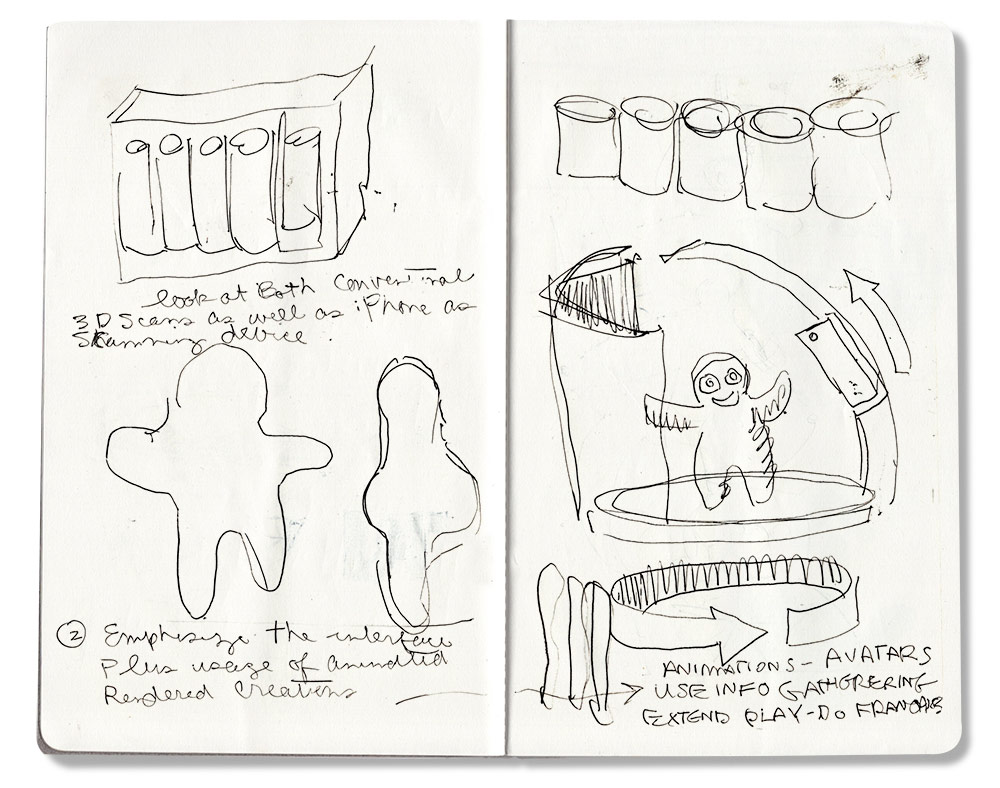 look at Both Conventional
3D Scans as well as iPhone as
Scanning device.
② Emphasize the interface
Plus usage of animated
Rendered Creations
ANIMATIONS - AVATARS
USE INFO GATHERERING
EXTEND PLAY-DO